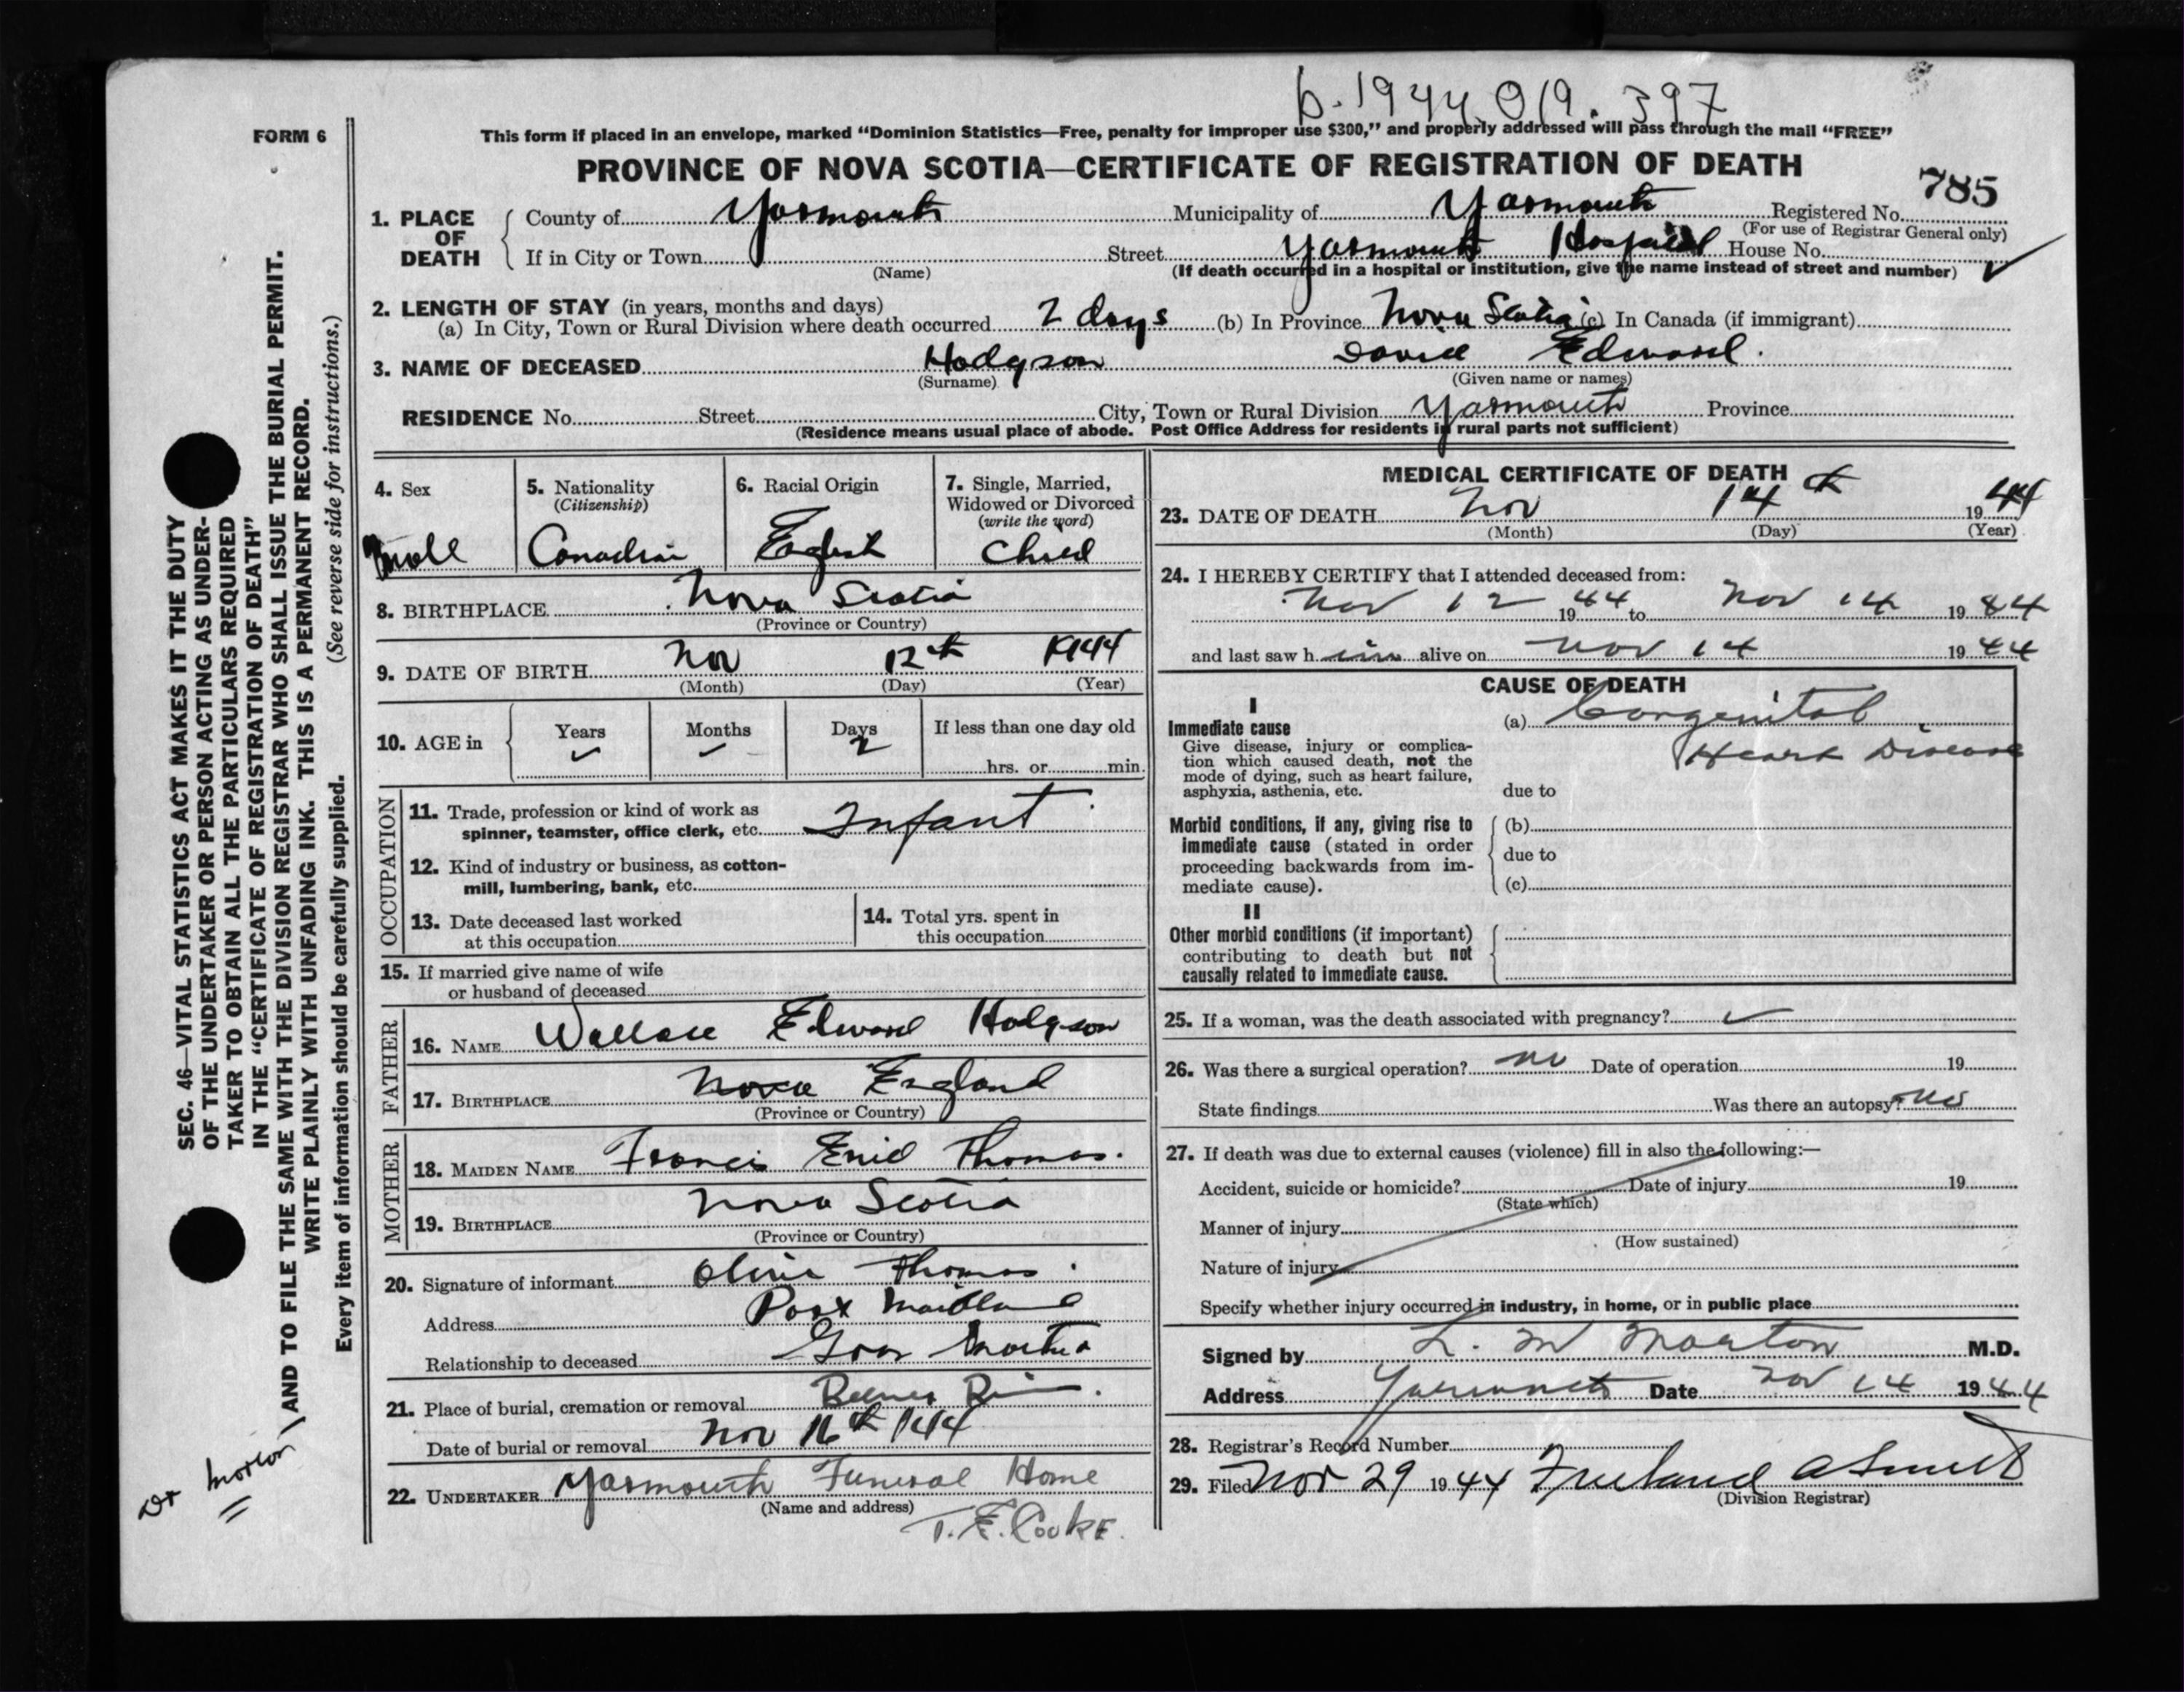 b. 1944. 019. 397
FORM 6
This form if placed in an envelope, marked “Dominion Statistics—Free, penalty for improper use $300,” and properly addressed will pass through the mail “FREE”
PROVINCE OF NOVA SCOTIA—CERTIFICATE OF REGISTRATION OF DEATH
785
1. PLACE OF DEATH
County of Yarmouth Municipality of Yarmouth Registered No.
(For use of Registrar General only)
If in City or Town Street Yarmouth Hospital House No.
(Name) (If death occurred in a hospital or institution, give the name instead of street and number) ✓
2. LENGTH OF STAY (in years, months and days)
(a) In City, Town or Rural Division where death occurred 2 days (b) In Province Nova Scotia (c) In Canada (if immigrant)
3. NAME OF DECEASED Hodgson David Edward.
(Surname) (Given name or names)
RESIDENCE No. Street City, Town or Rural Division Yarmouth Province
(Residence means usual place of abode. Post Office Address for residents in rural parts not sufficient)
4. Sex
Male
5. Nationality
(Citizenship)
Canadian
6. Racial Origin
English
7. Single, Married,
Widowed or Divorced
(write the word)
Child
8. BIRTHPLACE Nova Scotia
(Province or Country)
9. DATE OF BIRTH Nov 12th 1944
(Month) (Day) (Year)
10. AGE in
Years Months Days If less than one day old
✓ – 2
hrs. or min.
OCCUPATION
11. Trade, profession or kind of work as
spinner, teamster, office clerk, etc. Infant
12. Kind of industry or business, as cotton-
mill, lumbering, bank, etc.
13. Date deceased last worked
at this occupation
14. Total yrs. spent in
this occupation
15. If married give name of wife
or husband of deceased
FATHER
16. NAME Wallace Edward Hodgson
17. BIRTHPLACE Nova England
(Province or Country)
MOTHER
18. MAIDEN NAME Francis Enid Thomas.
19. BIRTHPLACE Nova Scotia
(Province or Country)
20. Signature of informant Olive Thomas
Address Port Maitland
Relationship to deceased Gran Mother
21. Place of burial, cremation or removal
Date of burial or removal Nov 16th 1944
22. UNDERTAKER Yarmouth Funeral Home
(Name and address)
T. E. Cooke.
MEDICAL CERTIFICATE OF DEATH
23. DATE OF DEATH Nov 14th 1944
(Month) (Day) (Year)
24. I HEREBY CERTIFY that I attended deceased from:
Nov 12 1944 to Nov 14 1944
and last saw h im alive on Nov 14 1944
CAUSE OF DEATH
I
Immediate cause
Give disease, injury or complica-
tion which caused death, not the
mode of dying, such as heart failure,
asphyxia, asthenia, etc.
(a) Congenital
Heart Disease
due to
Morbid conditions, if any, giving rise to
immediate cause (stated in order
proceeding backwards from im-
mediate cause).
(b)
due to
(c)
II
Other morbid conditions (if important)
contributing to death but not
causally related to immediate cause.
25. If a woman, was the death associated with pregnancy? ✓
26. Was there a surgical operation? no Date of operation 19
State findings Was there an autopsy? no
27. If death was due to external causes (violence) fill in also the following:—
Accident, suicide or homicide? Date of injury 19
(State which)
Manner of injury
(How sustained)
Nature of injury
Specify whether injury occurred in industry, in home, or in public place
Signed by L. M Morton M.D.
Address Yarmouth Date Nov 14 1944
28. Registrar's Record Number
29. Filed Nov 29 1944 Freeland A Smith
(Division Registrar)
SEC. 46—VITAL STATISTICS ACT MAKES IT THE DUTY
OF THE UNDERTAKER OR PERSON ACTING AS UNDER-
TAKER TO OBTAIN ALL THE PARTICULARS REQUIRED
IN THE “CERTIFICATE OF REGISTRATION OF DEATH”
AND TO FILE THE SAME WITH THE DIVISION REGISTRAR WHO SHALL ISSUE THE BURIAL PERMIT.
WRITE PLAINLY WITH UNFADING INK. THIS IS A PERMANENT RECORD.
Every item of information should be carefully supplied. (See reverse side for instructions.)
Dr Morton